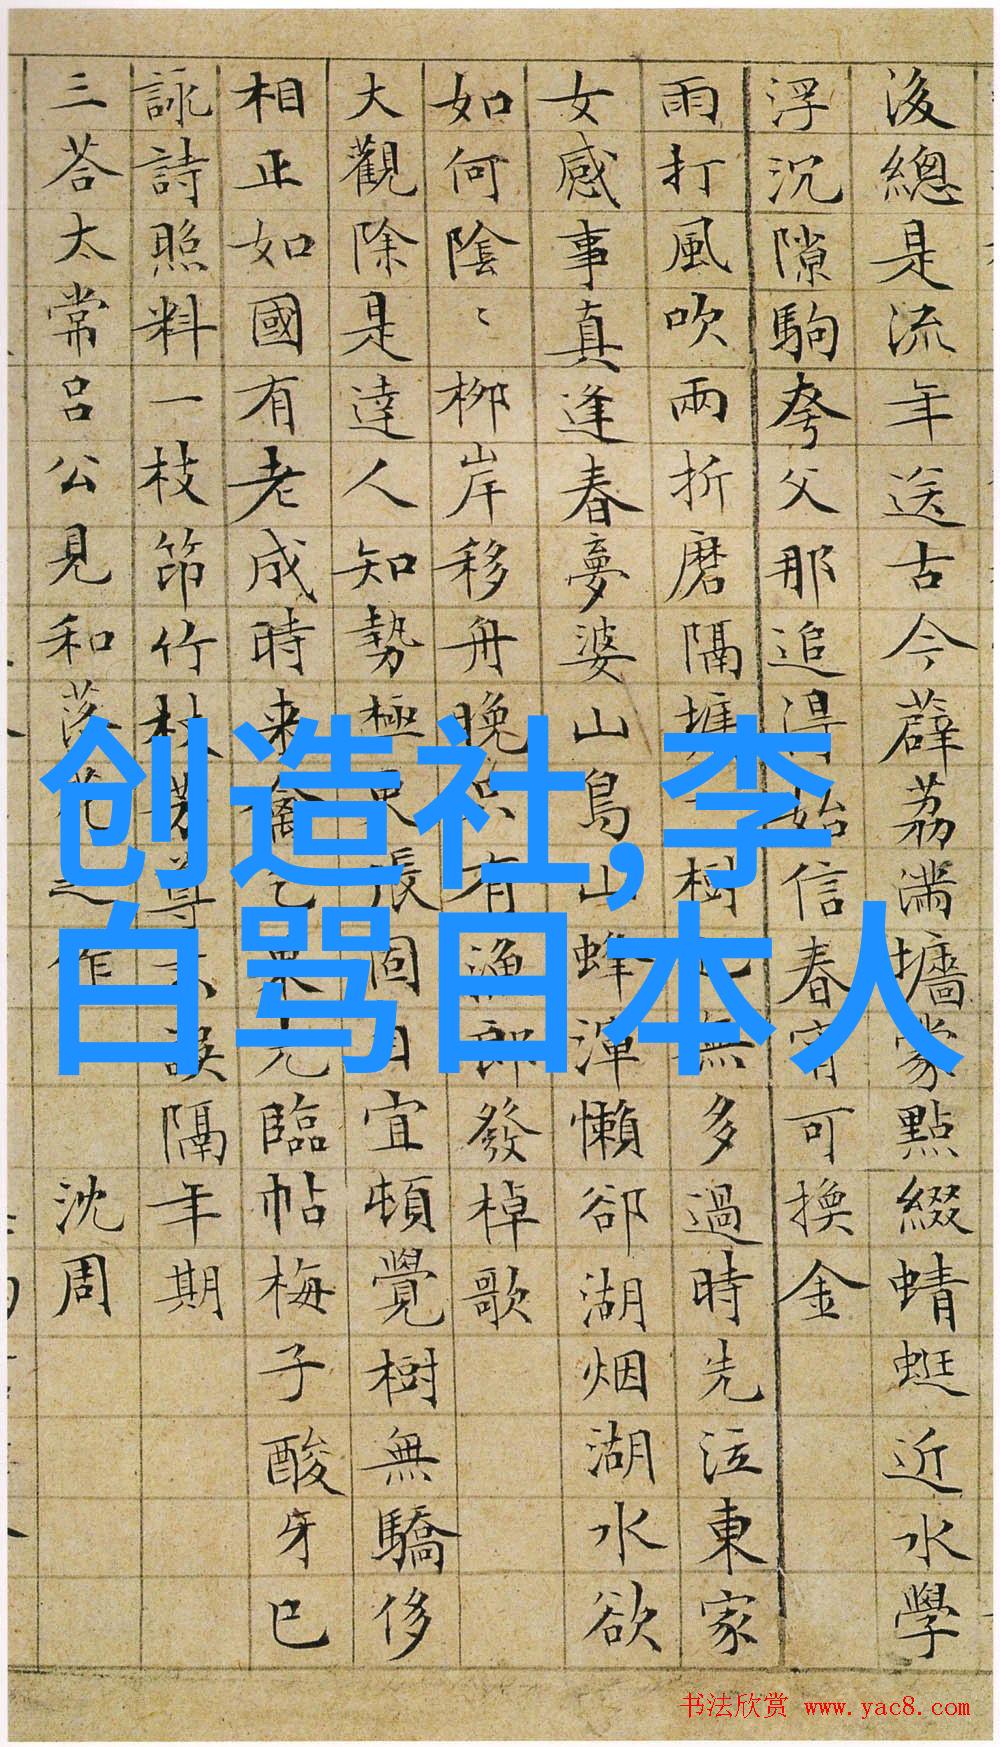 创造社,李
白骂日本人
後總是流年送古今薜荔滿墻蒙點綴蜻蜓近水學
浮沉隙駒夸父那追得始信春宵可換金
雨打風吹兩折磨隔墻樹無多過時先泣東家
女感事真逢春夢婆山鳥山蜂渾懶卻湖烟湖水欲
如何陰〻柳岸移舟晚只有漁郎發棹歌
大觀除是達人知勢極更張固自宜頓覺樹無驕侈
相正如國有老成時来禽乞果先臨帖梅子酸牙已
詠詩照料一枝笻竹杖芳尊誤隔年期
三荅太常呂公見和落花之作 沈周
书法欣赏 www.yac8.com